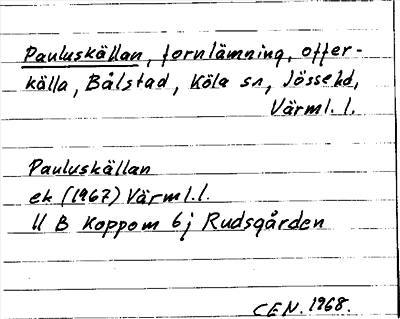 Pauluskällan, fornlämning, offer-
källa, Bålstad, Köla sn, Jösse hd,
Värml. l.
Pauluskällan
ek (1967) Värml. l.
11 B Koppom 6j Rudsgården
CEN. 1968.